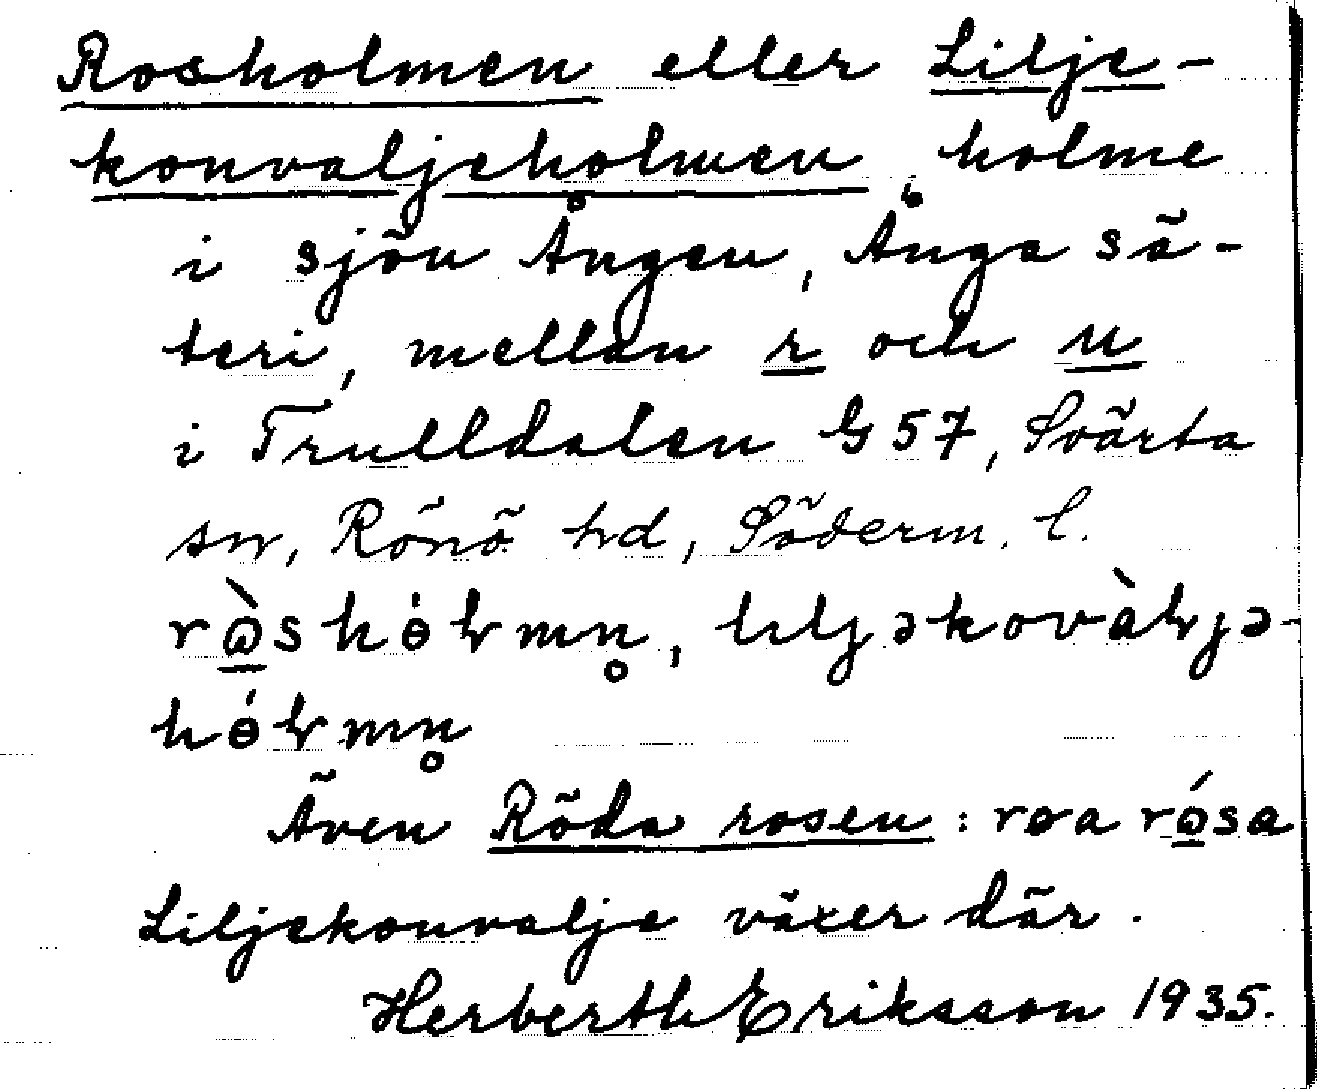 Rosholmen eller Lilje-
konvaljeholmen, holme
i sjön Ången, Ånga sä-
teri, mellan r och u
i Trulldalen G 57, Svärta
sn, Rönö hd, Söderm. l.
Även Röda rosen:
Liljekonvalje växer där.
Herberth Eriksson 1935.